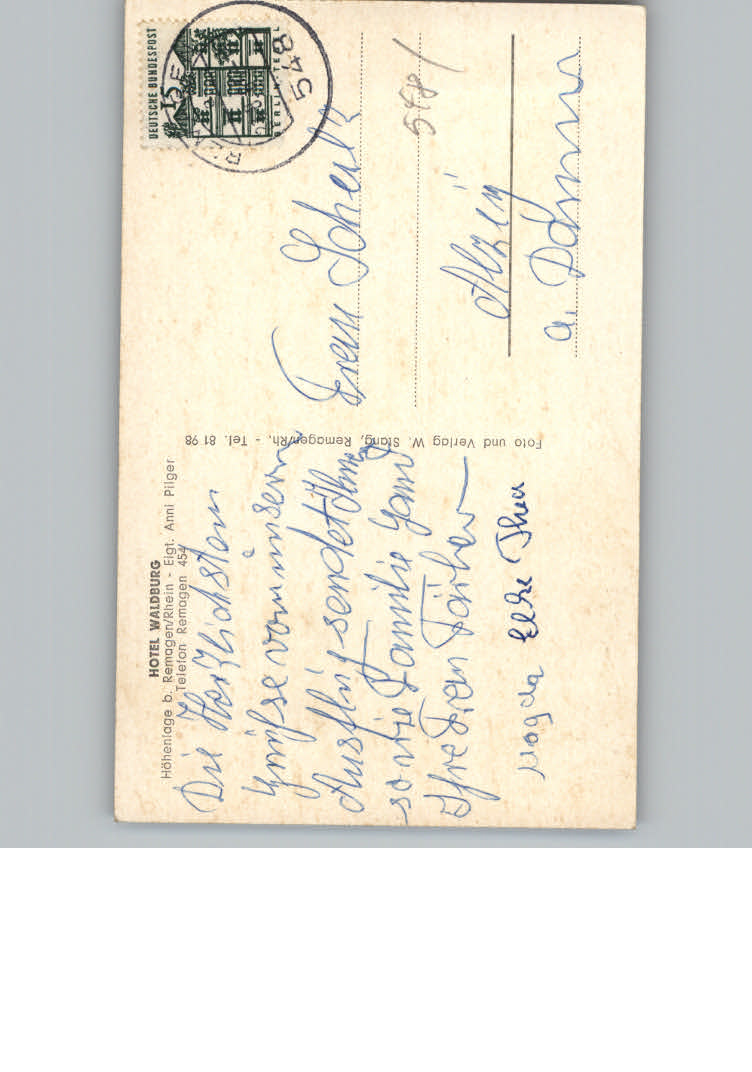 HOTEL WALDBURG
Höhenlage b. Remagen/Rhein - Eigt. Anni Pilger
Telefon Remagen 454
Die Herzlichsten
Grüsse von unserm
Ausflug sendet Ihnen
sowie Familie
Ihre Frau Färber
Magda Elke Thea
Foto und Verlag W. Stang, Remagen/Rh. - Tel. 81 98
DEUTSCHE BUNDESPOST
15
BERLIN-TEGEL
548
Frau
a.